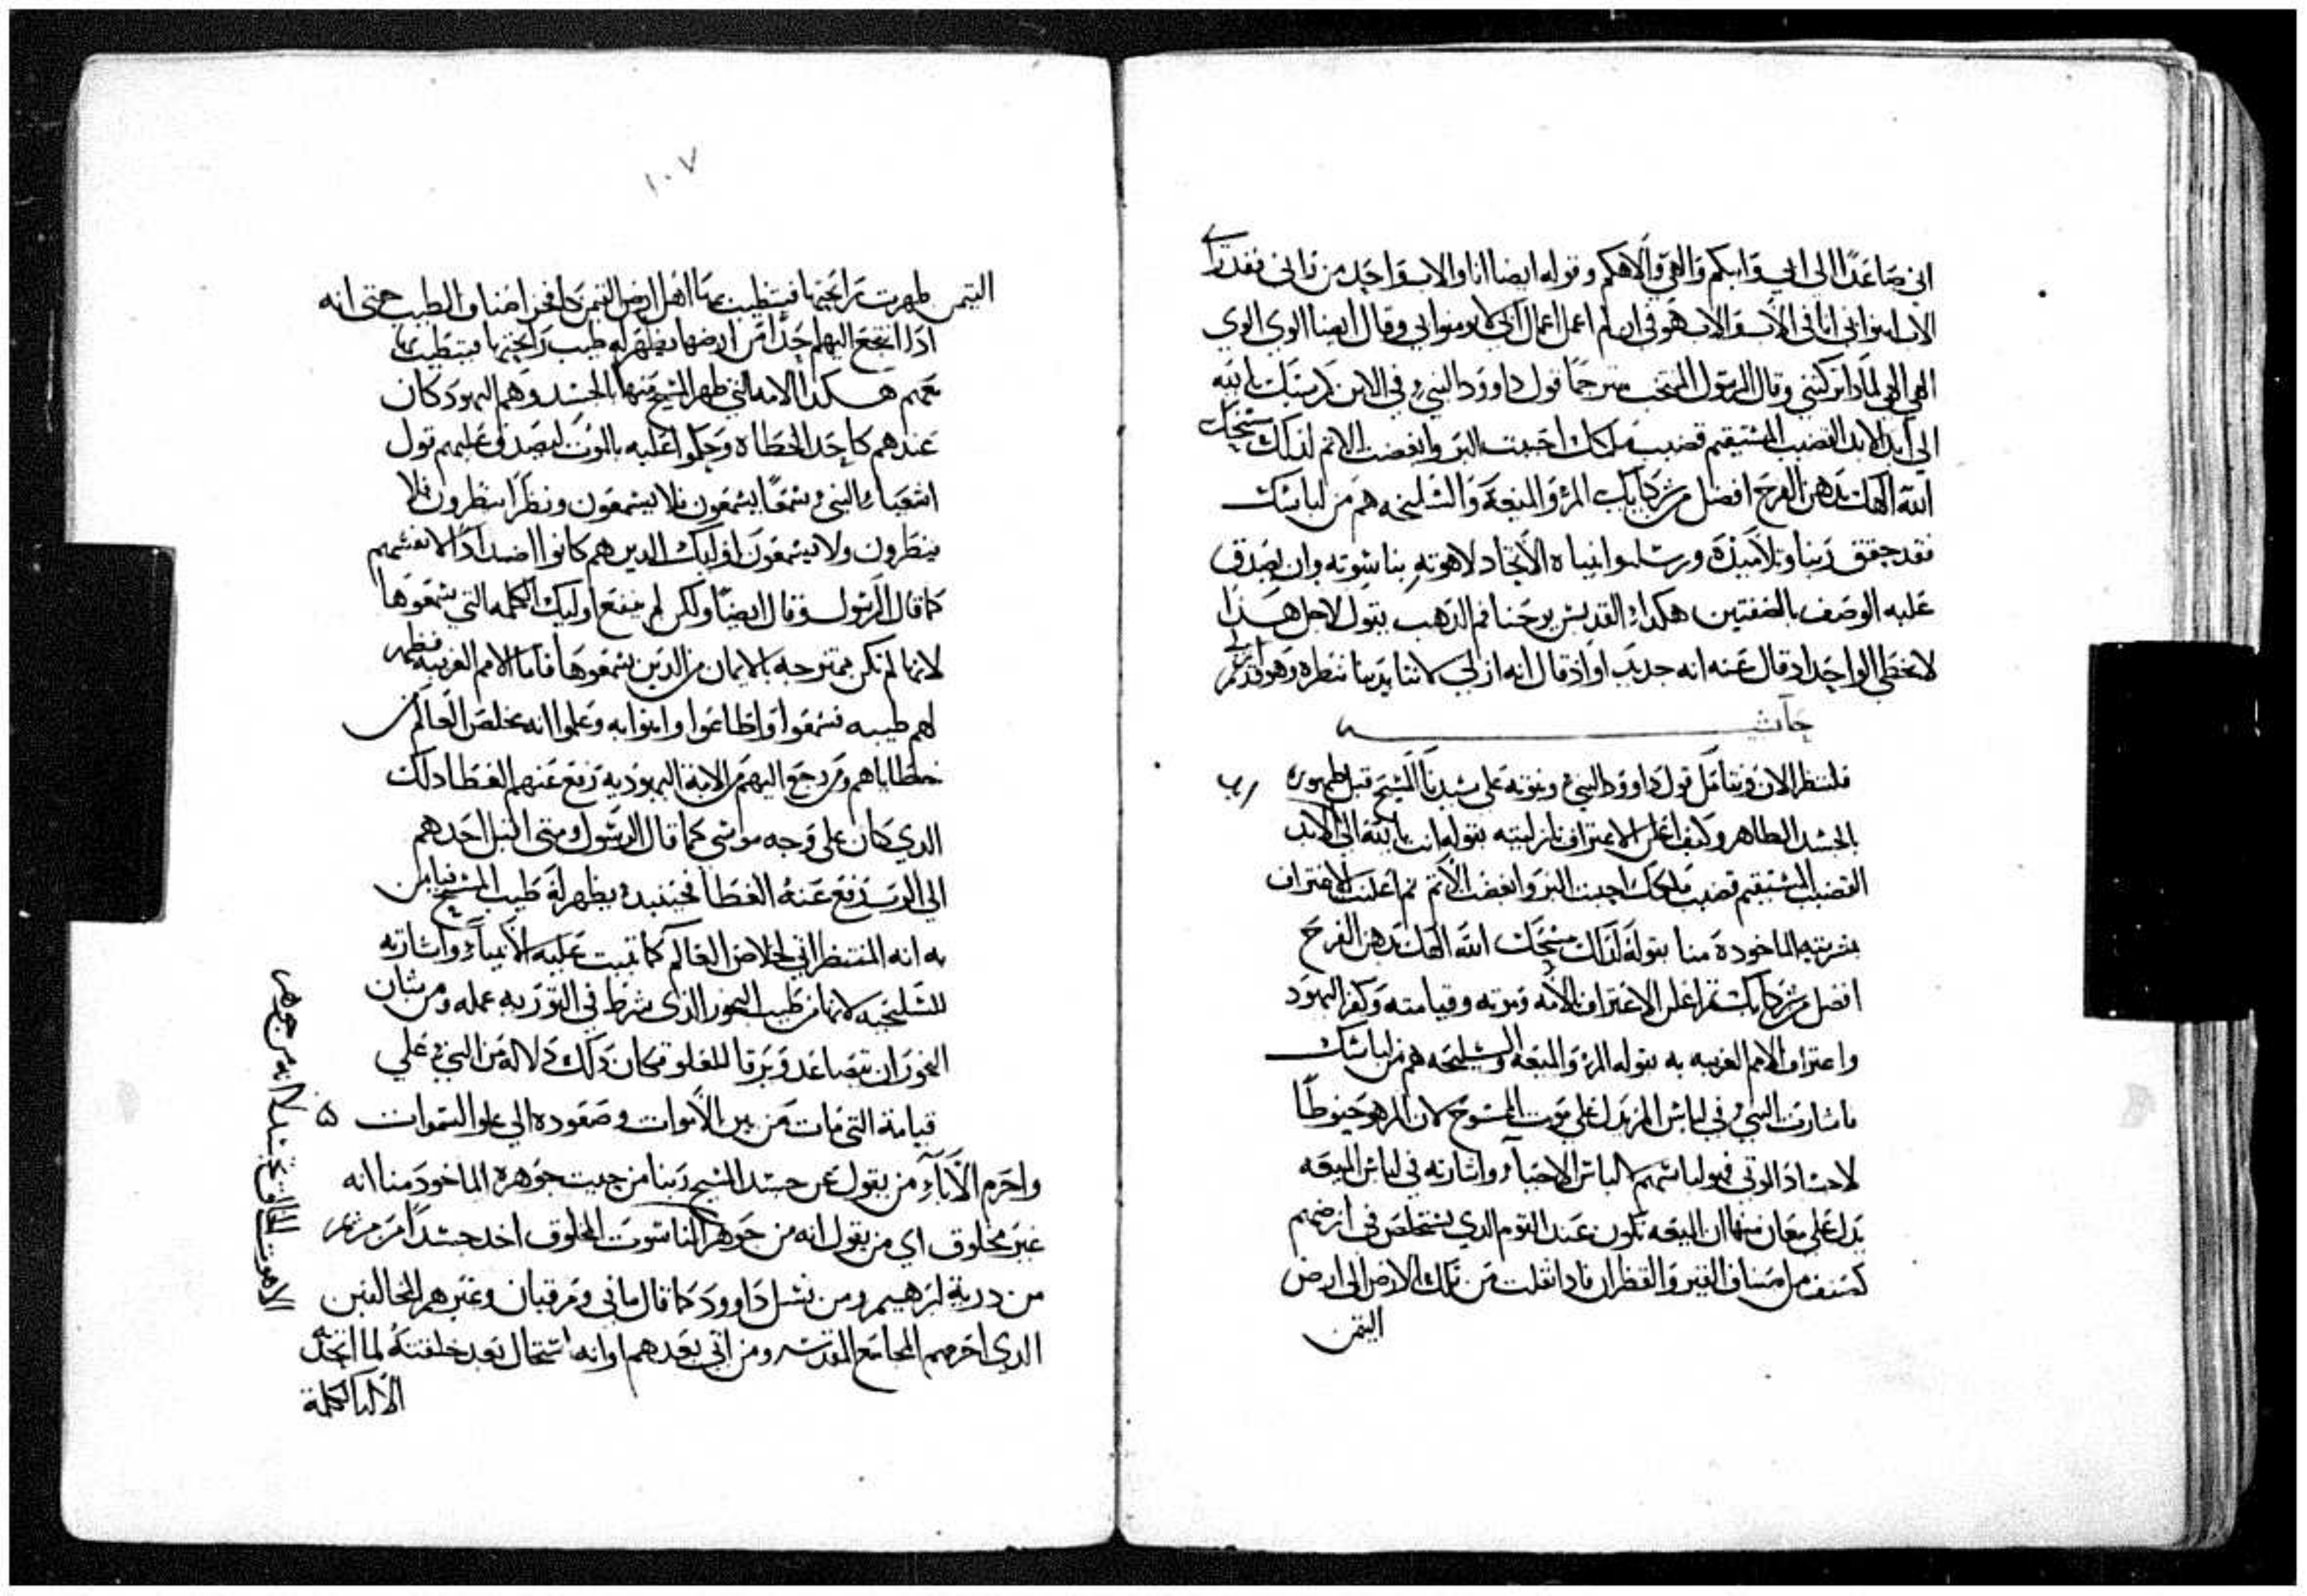 اني صاعدًا الى ابي وابيكم والهي والاهكم وقوله ايضا انا والاب واحد من راني فقد راى
الاب امنوا بي اني انا في الاب والاب هو في ان لم اعمل اعمال ابي لا تومنوا بي وقال ايضا الوي الوي
الهي الهي لماذا تركتني وقال الرسول المنتخب مترجمًا قول داوود النبي في الابن كرسيك يا الله
الى ابد الابد القضيب المستقيم قضيب ملكك احببت البر وابغضت الاتم لذلك مسحك
الله الاهك بدهن الفرح افضل من شركايك المر والميعة والسليخه هم من لباسك
فقد حقق ربنا وتلاميذه ورسله وانبياه الاتحاد لاهوته بناسوته وان يصدق
عليه الوصف بالصفتين هكدا القديس يوحنا فم الذهب يقول لاجل هذا
لا يخطي الواحد اد قال عنه انه جديد او اذ قال انه ازلي لاننا بدينا ننظره وهو قديم ازلي
حاشيه
فلننظر الان ونتامل قول داوود النبي ونبوته على سيدنا المسيح قبل ظهوره
بالجسد الطاهر وكيف اعلن الاعتراف بازليته بقوله انت يا الله الى الابد
القضيب المستقيم قضيب ملكك احببت البر وابغضت الاتم تم اعلنت الاعتراف
بشريته الماخودة منا بقوله لذلك مسحك الله الاهك بدهن الفرح
افضل من شركايك تم اعلن الاعتراف بالامه وموته وقيامته وكفر اليهود
واعتراف الامم الغريبه به بقوله المر والميعه والسليخه هم من لباسك
فاشارت النبي في لباس المر يدل على موت المسيح لان المر هو حنوطًا
لاجساد الموتى فهو لباسهم لا لباس الاحياء واشارته في لباس الميعه
يدل على معان منها ان الميعه تكون عند القوم الذي يستخلص في ارضهم
كصنف من اصناف القير والقطران فاذا نقلت من تلك الارض الى ارض
اليمن
١٠٧
اليمن ظهرت رايحتها فيتطيب بها اهل ارض اليمن كافخر اصناف الطيب حتى انه
اذا اتجع اليهم احدًا من ارضها يظهر له طيب رايحتها فيتطيب بها
معهم هكدا الامه التي ظهر المسيح منها بالجسد وهم اليهود كان
عندهم كاحد الخطاه وحكموا عليه بالموت ليصدق عليهم قول
اشعياء النبي سمعًا يسمعون فلا يسمعون ونظرًا ينظرون فلا
ينظرون ولا يسمعون اوليك الدين هم كانوا اضدادًا لانفسهم
كما قال الرسول وقال ايضًا ولكن لم ينفع اوليك الكلمه التي سمعوها
لانها لم تكن ممتزجه بالايمان من الذين سمعوها فاما الامم الغريبه فظهر
لهم طيبه فسمعوا واطاعوا وامنوا به وعلموا انه مخلص العالم من
خطاياهم ومن رجع اليهم من الامة اليهوديه رفع عنهم الغطا دلك
الدي كان على وجه موسى كما قال الرسول ومتى اقبل احدهم
الى الرب رفع عنه الغطا فحينيد يظهر له طيب المسيح فيامن
به انه المنتظر اتي لخلاص العالم كما تنبت عليه الانبياء واشارته
للسليخه لانها من طيب البخور الذي شرط في التوريه عمله ومن شان
البخور ان يتصاعد ويرقا للعلو فكان ذلك دلالة من النبي على
قيامة التي مات من بين الاموات وصعوده الى علو السموات
واحرم الاباء من يقول عن جسد المسيح ربنا من حيت جوهره الماخود منا انه
غير مخلوق اي من يقول انه من جوهر الناسوت المخلوق اخد جسدًا من مريم
من درية ابرهيم ومن نسل داوود كما قال ماني ومرقيان وغيرهم المخالفين
الدي احرمهم المجامع المقدسه ومن اتى بعدهم او انه استحال بعد خلقته لما اتحد
الاله الكلمة